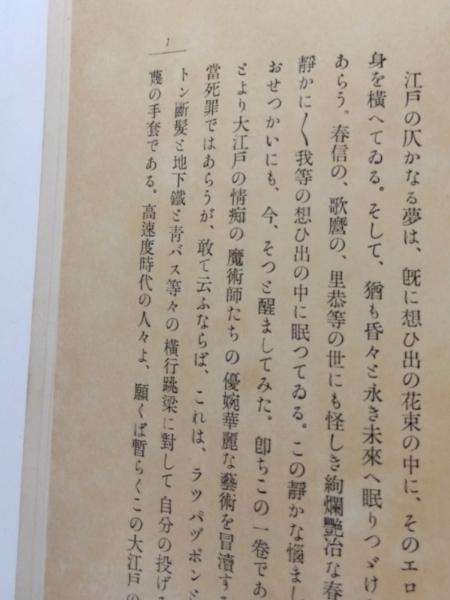 江戸の仄かなる夢は、既に想ひ出の花束の中に、そのエロ
身を横へてゐる。そして、猶も昏々と永き未來へ眠りつゞけ
あらう。春信の、歌麿の、里恭等の世にも怪しき絢爛艷冶な春
靜かに〳〵我等の想ひ出の中に眠つてゐる。この靜かな惱まし
おせつかいにも、今、そつと醒ましてみた。卽ちこの一卷であ
とより大江戸の情痴の魔術師たちの優婉華麗な藝術を冒瀆する
當死罪ではあらうが、敢て云ふならば、これは、ラツパヅボンと
トン斷髮と地下鐵と青バス等々の横行跳梁に對して自分の投げる
蔑の手套である。高速度時代の人々よ、願くば暫らくこの大江戸の
1